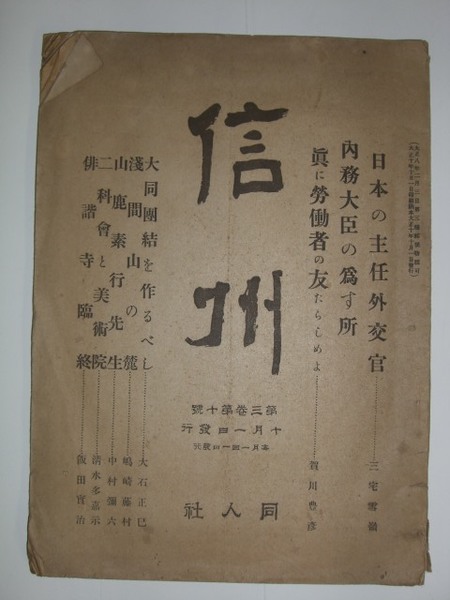 日本の主任外交官……三宅雪嶺
內務大臣の爲す所
眞に勞働者の友たらしめよ……賀川豊彦
信州
第三卷第十號
十月一日發行
每月一回一日發行
同人社
大同團結を作るべし……大石正巳
淺間山の麓……嶋崎藤村
山鹿素行先生……中村彌六
二科會と美術院……淸水多嘉示
俳諧寺臨終……飯田實治